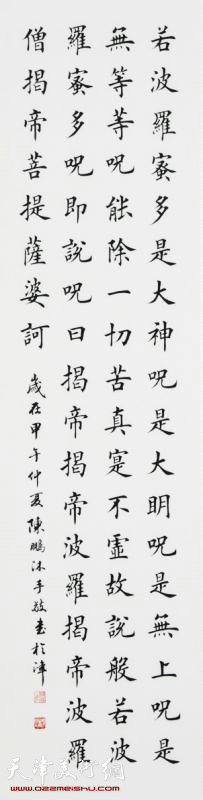 若波羅蜜多是大神咒是大明咒是無上咒是
無等等咒能除一切苦真寔不虛故說般若波
羅蜜多咒即說咒曰揭帝揭帝波羅揭帝波羅
僧揭帝菩提薩婆訶
歲在甲午仲夏陳鵬沐手敬書於津
天津美术网
www.022meishu.com